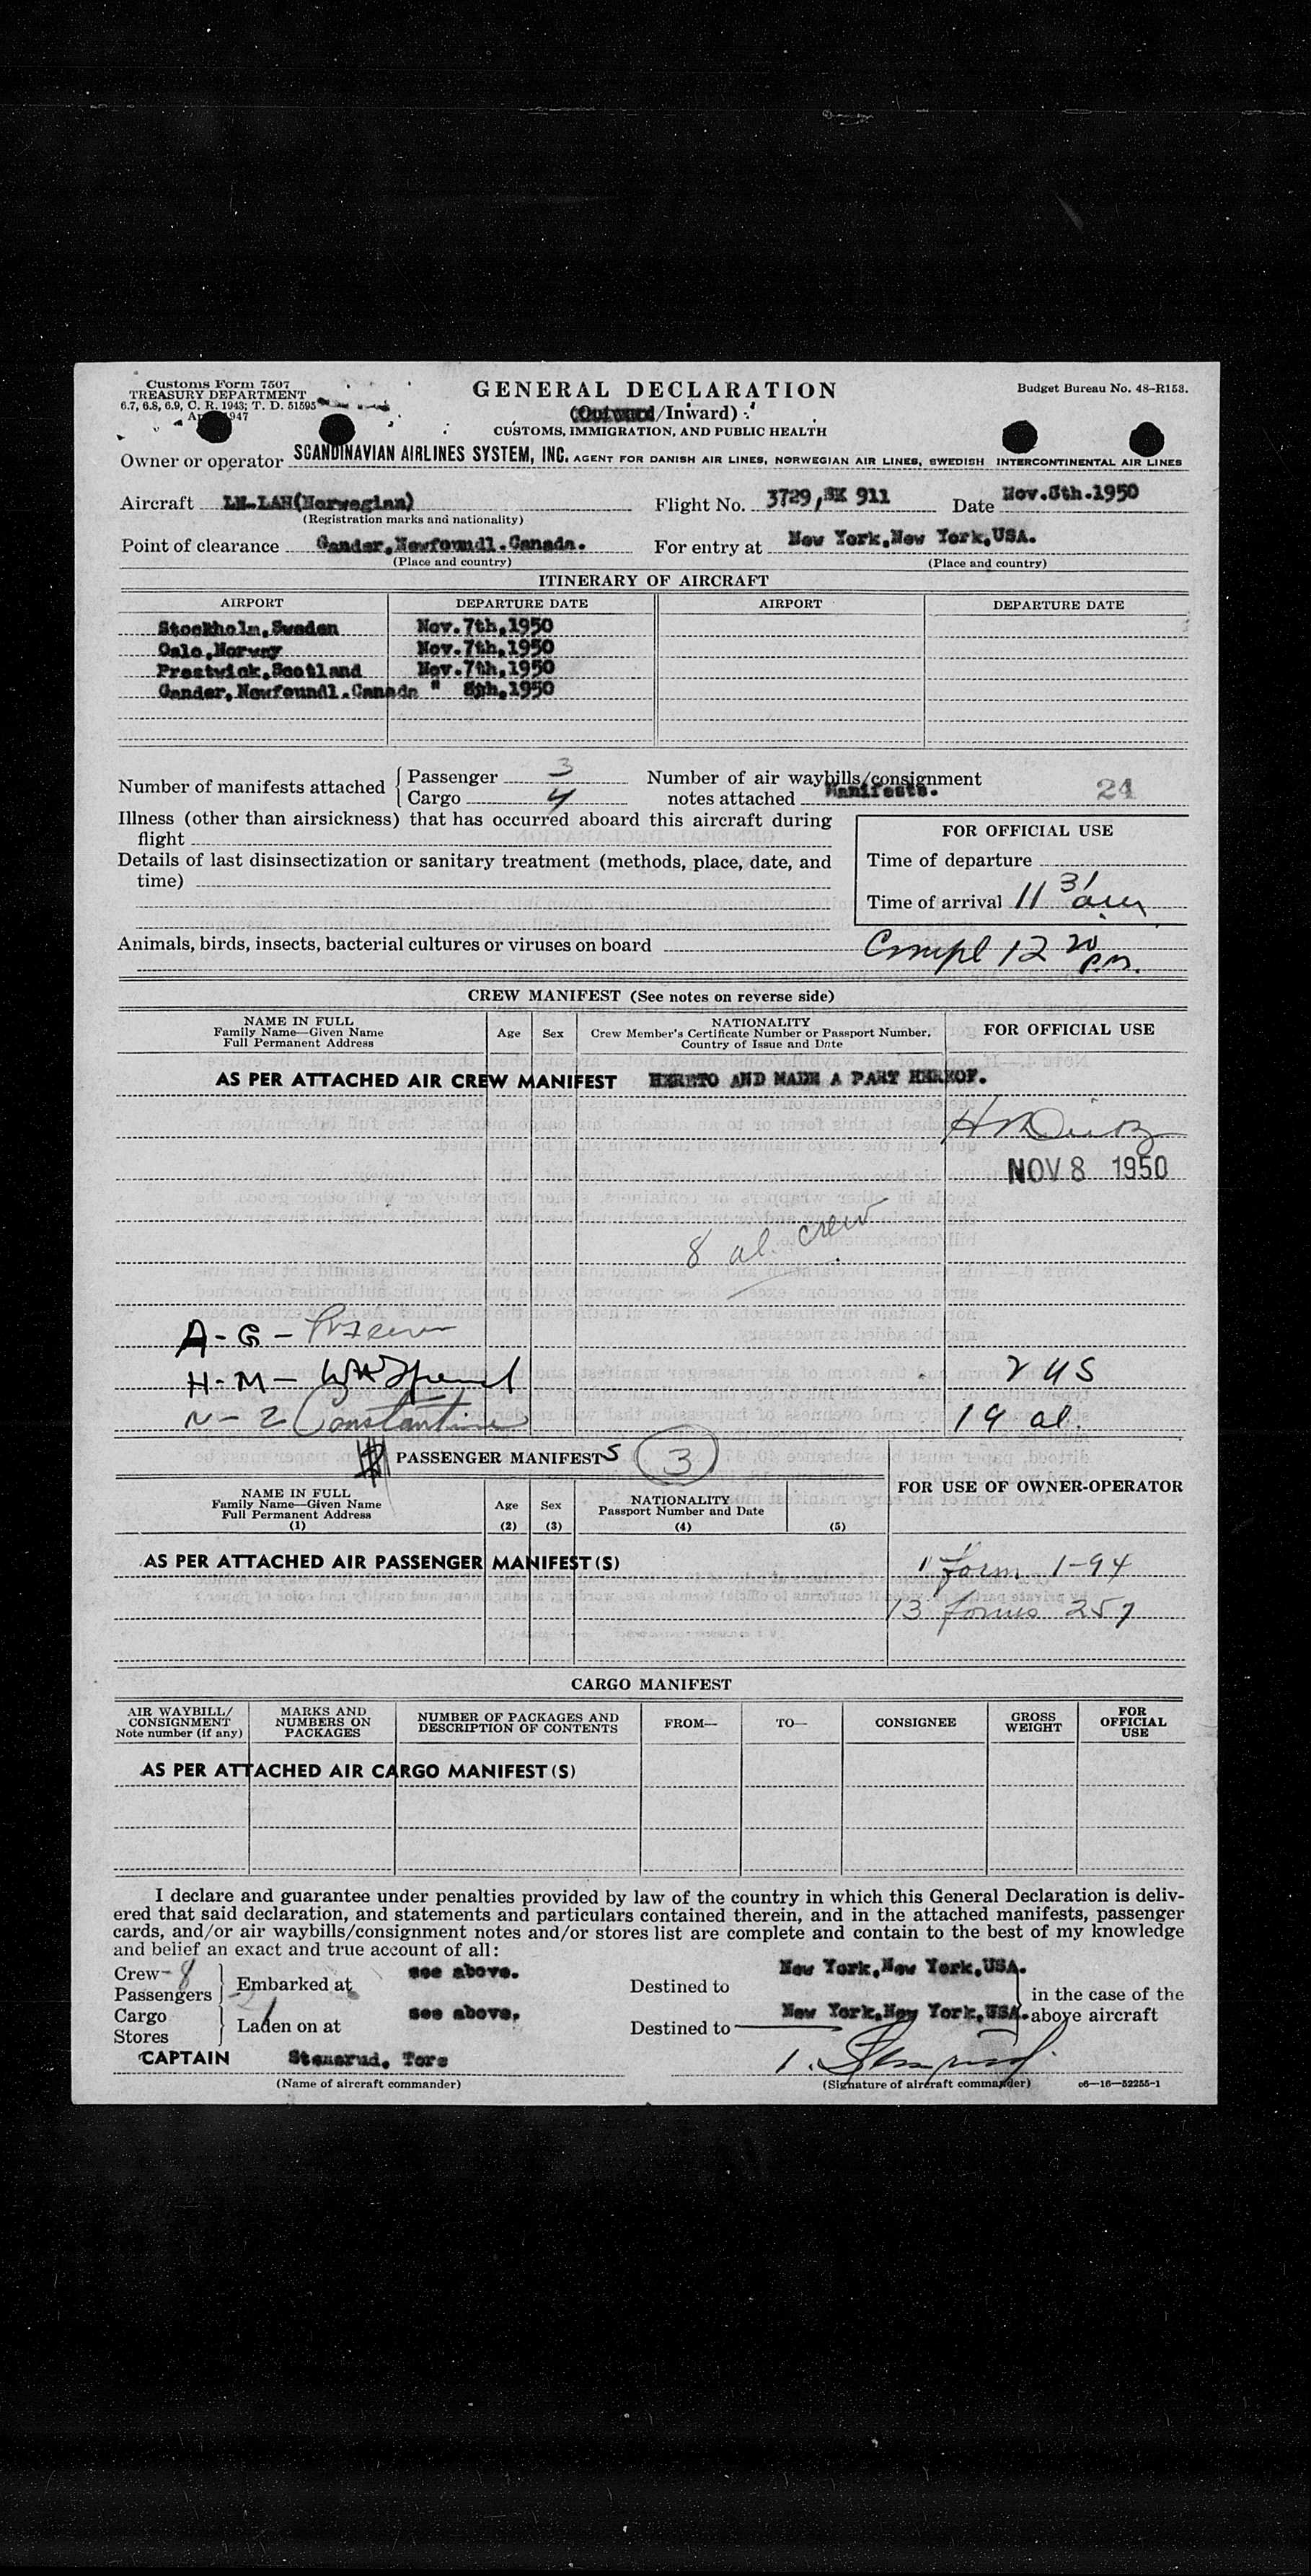 Customs Form 7507
TREASURY DEPARTMENT
6.7, 6.8, 6.9, C. R. 1943; T. D. 51595
1947
GENERAL DECLARATION
(Outward/Inward)
CUSTOMS, IMMIGRATION, AND PUBLIC HEALTH
Budget Bureau No. 48-R153.
Owner or operator SCANDINAVIAN AIRLINES SYSTEM, INC. AGENT FOR DANISH AIR LINES, NORWEGIAN AIR LINES, SWEDISH INTERCONTINENTAL AIR LINES
Aircraft LN-LAH(Norwegian) Flight No. 3729,SK 911 Date Nov.8th.1950
(Registration marks and nationality)
Point of clearance Gander,Newfoundl.Canada. For entry at New York,New York,USA.
(Place and country) (Place and country)
ITINERARY OF AIRCRAFT
AIRPORT DEPARTURE DATE AIRPORT DEPARTURE DATE
Stockholm,Sweden Nov.7th,1950
Oslo,Norway Nov.7th,1950
Prestwick,Scotland Nov.7th,1950
Gander,Newfoundl.Canada " 8th,1950
Number of manifests attached { Passenger 3 Number of air waybills/consignment
Cargo 4 notes attached Manifests. 24
Illness (other than airsickness) that has occurred aboard this aircraft during
flight
FOR OFFICIAL USE
Details of last disinsectization or sanitary treatment (methods, place, date, and
time)
Time of departure
Time of arrival 11 31 am
Animals, birds, insects, bacterial cultures or viruses on board Compl 12 20 p.m.
CREW MANIFEST (See notes on reverse side)
NAME IN FULL
Family Name—Given Name
Full Permanent Address
Age Sex
NATIONALITY
Crew Member's Certificate Number or Passport Number,
Country of Issue and Date
FOR OFFICIAL USE
AS PER ATTACHED AIR CREW MANIFEST HERETO AND MADE A PART HEREOF.
NOV 8 1950
8 al. crew
A-G-
H-M- 2 US
N-Z Constantine 19 al.
PASSENGER MANIFESTS 3
FOR USE OF OWNER-OPERATOR
NAME IN FULL
Family Name—Given Name
Full Permanent Address
(1)
Age
(2)
Sex
(3)
NATIONALITY
Passport Number and Date
(4)
(5)
AS PER ATTACHED AIR PASSENGER MANIFEST(S)
1 form 1-94
13 forms 257
CARGO MANIFEST
AIR WAYBILL/
CONSIGNMENT
Note number (if any)
MARKS AND
NUMBERS ON
PACKAGES
NUMBER OF PACKAGES AND
DESCRIPTION OF CONTENTS
FROM—
TO—
CONSIGNEE
GROSS
WEIGHT
FOR
OFFICIAL
USE
AS PER ATTACHED AIR CARGO MANIFEST(S)
I declare and guarantee under penalties provided by law of the country in which this General Declaration is deliv-
ered that said declaration, and statements and particulars contained therein, and in the attached manifests, passenger
cards, and/or air waybills/consignment notes and/or stores list are complete and contain to the best of my knowledge
and belief an exact and true account of all:
Crew- 8
Passengers 21
Embarked at see above. Destined to New York,New York,USA.
in the case of the
above aircraft
Cargo
Stores
Laden on at see above. Destined to New York,New York,USA.
CAPTAIN Stensrud, Tore
(Name of aircraft commander) (Signature of aircraft commander) c6—16—52255-1